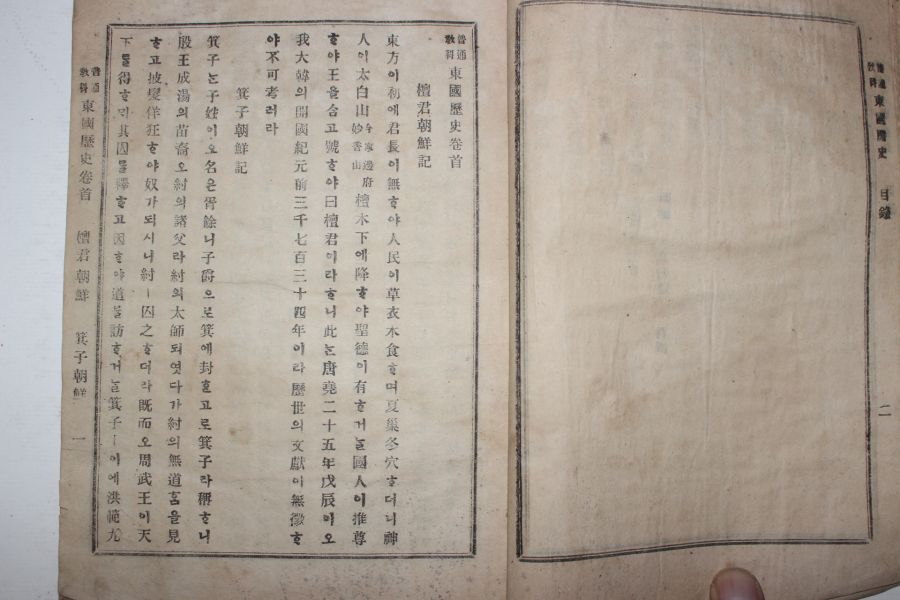 普通教科 東國歷史 目錄 二
普通教科 東國歷史卷首
檀君朝鮮記
東方이初에君長이無ᄒᆞ야人民이草衣木食ᄒᆞ며夏巢冬穴ᄒᆞ더니神
人이太白山 今寧邊府妙香山 檀木下에降ᄒᆞ야聖德이有ᄒᆞ거ᄂᆞᆯ國人이推尊
ᄒᆞ야王을合고號ᄒᆞ야曰檀君이라ᄒᆞ니此ᄂᆞᆫ唐堯二十五年戊辰이오
我大韓의開國紀元前三千七百三十四年이라歷世의文獻이無徵ᄒᆞ
야不可考러라
箕子朝鮮記
箕子ᄂᆞᆫ子姓이오名은胥餘니子爵으로箕에封ᄒᆞᆫ고로箕子라稱ᄒᆞ니
殷王成湯의苗裔오紂의諸父라紂의太師되엿다가紂의無道홈을見
ᄒᆞ고披髮佯狂ᄒᆞ야奴가되시니紂ㅣ囚之ᄒᆞ더라旣而오周武王이天
下를得ᄒᆞᄆᆡ其囚를釋ᄒᆞ고因ᄒᆞ야道를訪ᄒᆞ거ᄂᆞᆯ箕子ㅣ이에洪範九
普通教科 東國歷史卷首 檀君朝鮮 箕子朝鮮 一